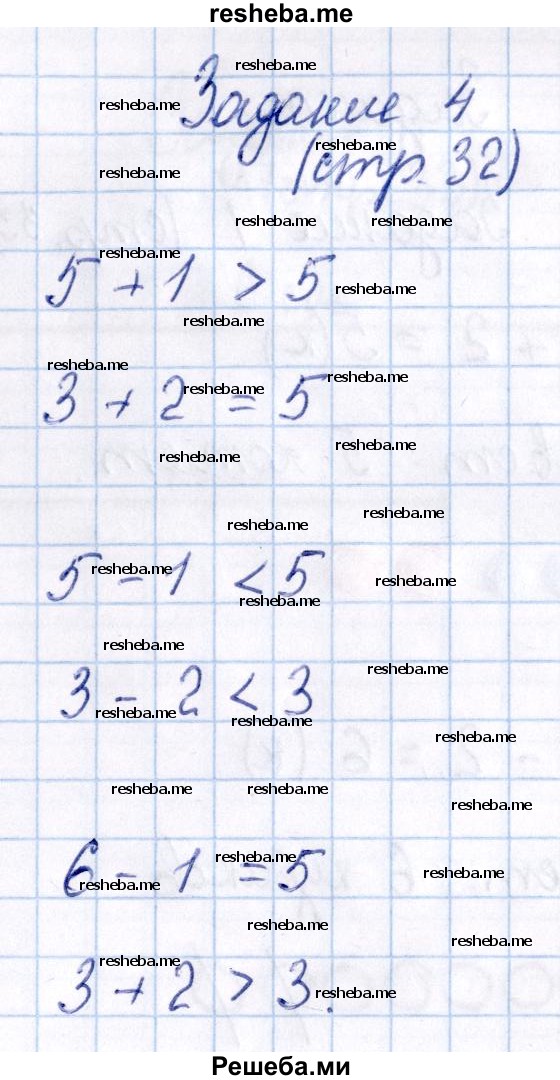 resheba.me
resheba.me
Задание 4
resheba.me
resheba.me
(стр. 32)
resheba.me
resheba.me resheba.me
resheba.me
5 + 1 > 5
resheba.me
resheba.me
resheba.me
resheba.me
3 + 2 = 5
resheba.me
resheba.me
resheba.me
resheba.me
resheba.me
resheba.me
5 - 1 < 5
resheba.me
resheba.me
resheba.me
resheba.me
3 - 2 < 3
resheba.me
resheba.me
resheba.me
resheba.me resheba.me
resheba.me
resheba.me
6 - 1 = 5
resheba.me
resheba.me
resheba.me
resheba.me
resheba.me
3 + 2 > 3.
resheba.me
Решеба.ми